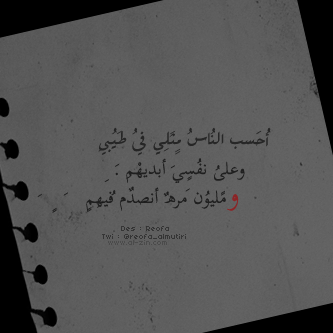 أحَسب النُاسُ مِثَلِي فِيُ طَيُبِي
وعلىُ نفُسِيَ أبديهْم .
و مًليُون مَرهـٌ أنصدًم فيهمٍ
Des : Reofa
Twi : @reofa_almutiri